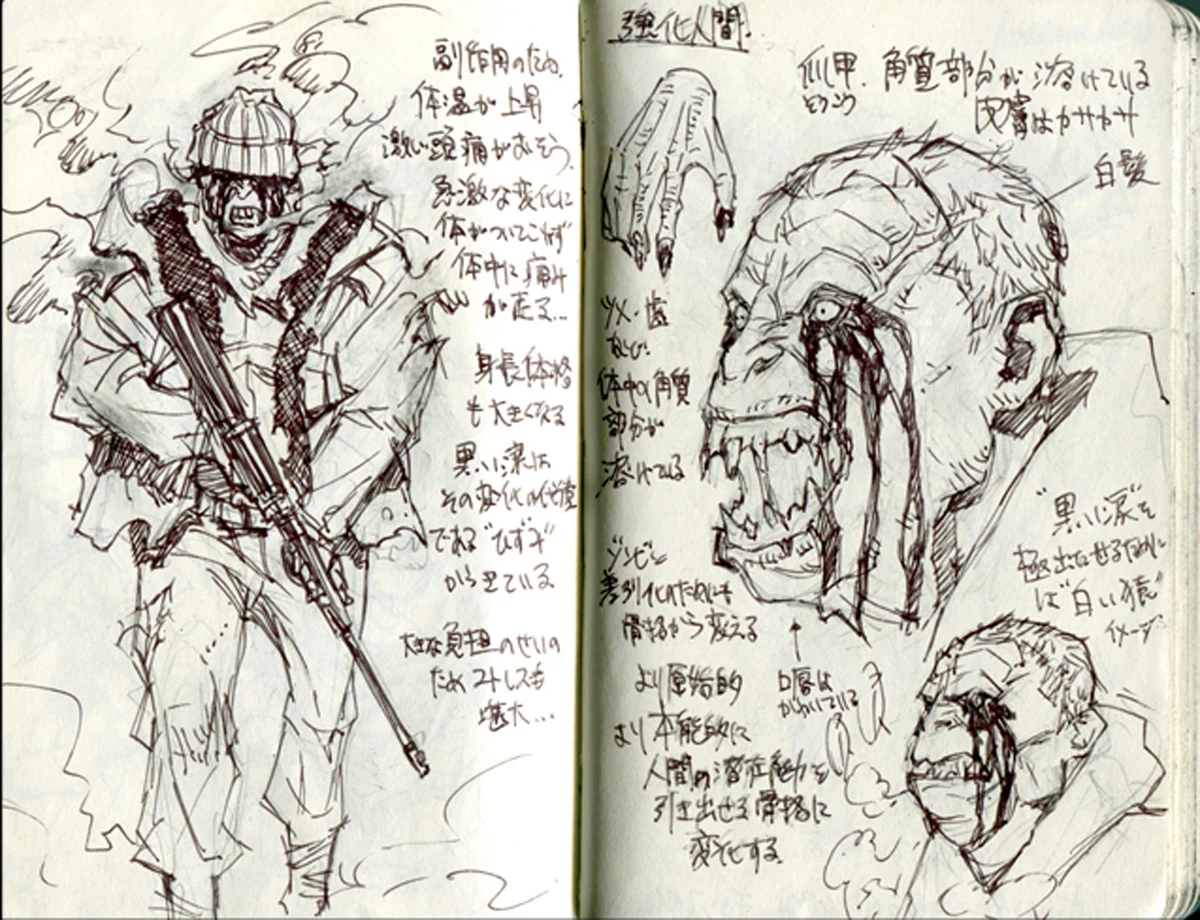 副作用のため、
体温が上昇
激しい頭痛がおそう。
急激な変化に
体がついてこれず
体中に痛み
が走る…
身長体格
も大きくなる
黒い涙は
その変化の代償
である"ひずみ"
からきている
大きな負担のせいの
ためストレスも
増大…
強化人間
爪甲
そうこう
角質部分が溶けている
皮膚はカサカサ
白髪
ツメ・歯
など
体中の角質
部分が
溶けている
ゾンビと
差別化のためにも
骨格から変える
より原始的
より本能的に
人間の潜在能力を
引き出せる骨格に
変化する
口唇は
かわいている
"黒い涙"を
極出たせるために
は"白い猿"
イメージ